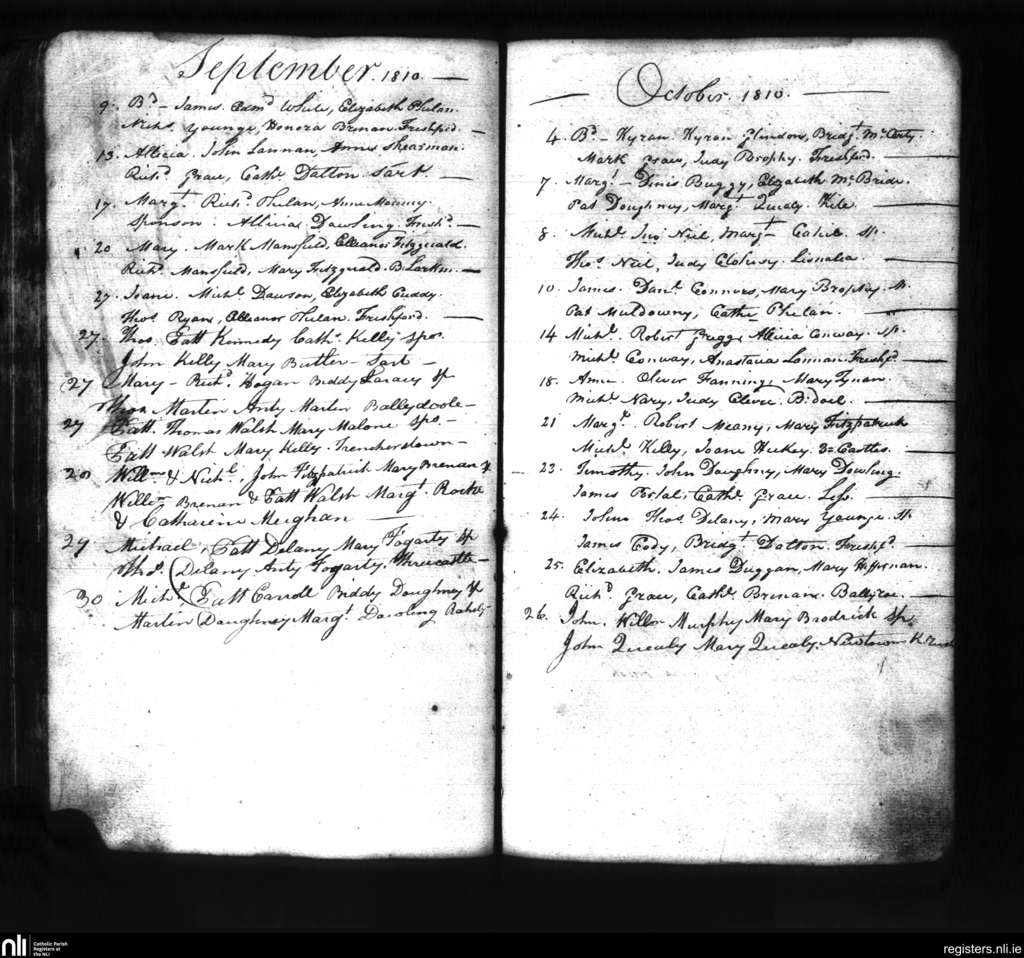 September. 1810.
9. Bd - James Edmd White, Elizabeth Phelan.
Nichs Younge, Honora Brenan. Freshford.
13. Allicia. John Lannan, Annes Shearman.
Richd Grace, Cathe Dalton Tart.
17. Margt. Richd Phelan, Anne
Sponsor. Allicia Dowling Freshd.
20 Mary. Mark Mansfield, Elleanor Fitzgerald.
Richd Mansfield, Mary Fitzgerald. B. Larkin.
27. Joane. Michl Dawson, Elizabeth Cuddy.
Thos Ryan, Elleanor Phelan. Freshford.
27. Thos. Patt Kennedy Cathe. Kelly Spos.
John Kelly Mary Butler - Tart -
27 Mary - Richd. Hogan Biddy Sp
Thos Martin Anty Martin Ballydoole -
27 Patt. Thomas Walsh Mary Malone Sps. -
Patt Walsh Mary Kelly. Trenchardstown -
28 Willm & Nichs. John Fitzpatrick Mary Brenan Sp
Willm Brenan & Patt Walsh Margt. Rocke
& Catharine Meighan
29 Michael, Patt Delany Mary Fogarty Sp
Thos. Delany Anty Fogarty. Threecastle -
30 Michl, Patt Carroll Biddy Doughney Sp
Martin Doughney Margt. Dowling
October. 1810.
4. Bd - Kyran. Kyran Glindon, Bridgt McCarty.
Mark Grace, Judy Brophy. Freshford.
7. Margt - Dinis Buggy, Elizabeth McBride.
Pat Doughney, Margt Quealy. Kile
8. Michl. Jno Neil, Margt Cahill. Sp.
Thos Neil, Judy Clohesy. Lisnalea.
10. James. Danl Connors, Mary Brophy.
Pat Muldowny, Cathe Phelan.
14 Michl. Robert Gregge Allicia Conway. Sp.
Michl Conway, Anastasia Lannan. Freshfd
18. Anne. Oliver Fanninge, Mary Tynan.
Michl Nary, Judy Clere.
21 Margt. Robert Meany, Mary Fitzpatrick
Michl Kelly, Joane Hickey. 3 Castles.
23. Timothy. John Doughny, Mary Dowling.
James Cathe Grace.
24. John. Thos Delany, Mary Younge. Sp
James Cody, Bridgt Dalton. Freshfd.
25. Elizabeth. James Duggan, Mary Heffernan.
Richd Grace, Cathe Brenan.
26. John. Willm Murphy Mary Brodrick Sps
John Quealy Mary Quealy. Newtown
nli
Catholic Parish
Registers at
the NLI
registers.nli.ie